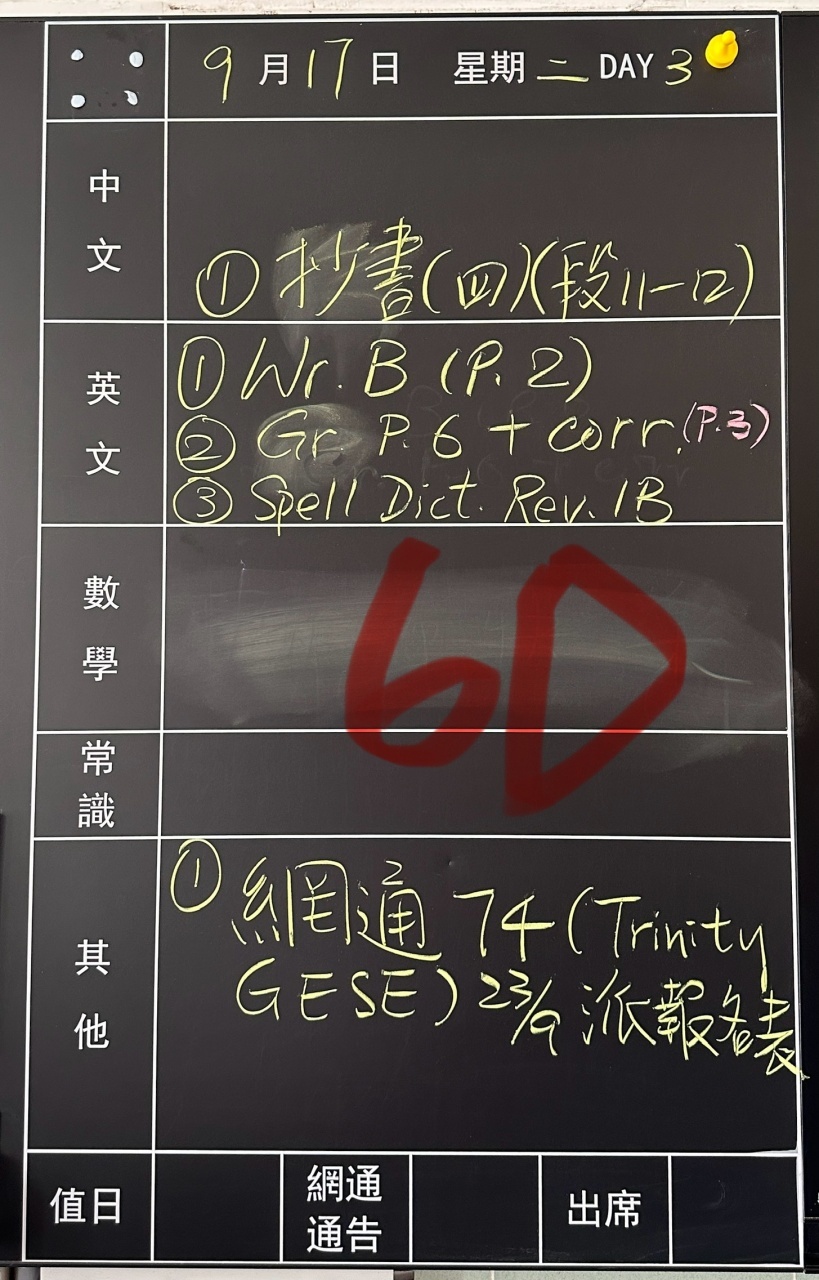 9月17日 星期二 DAY 3
中文
① 抄書(四)(段11-12)
英文
① Wr. B (P. 2)
② Gr. P. 6 + corr. (P.3)
③ Spell Dict. Rev. 1B
數學
6D
常識
其他
① 網通 74 (Trinity
GESE) 23/9 派報名表
值日 網通通告 出席